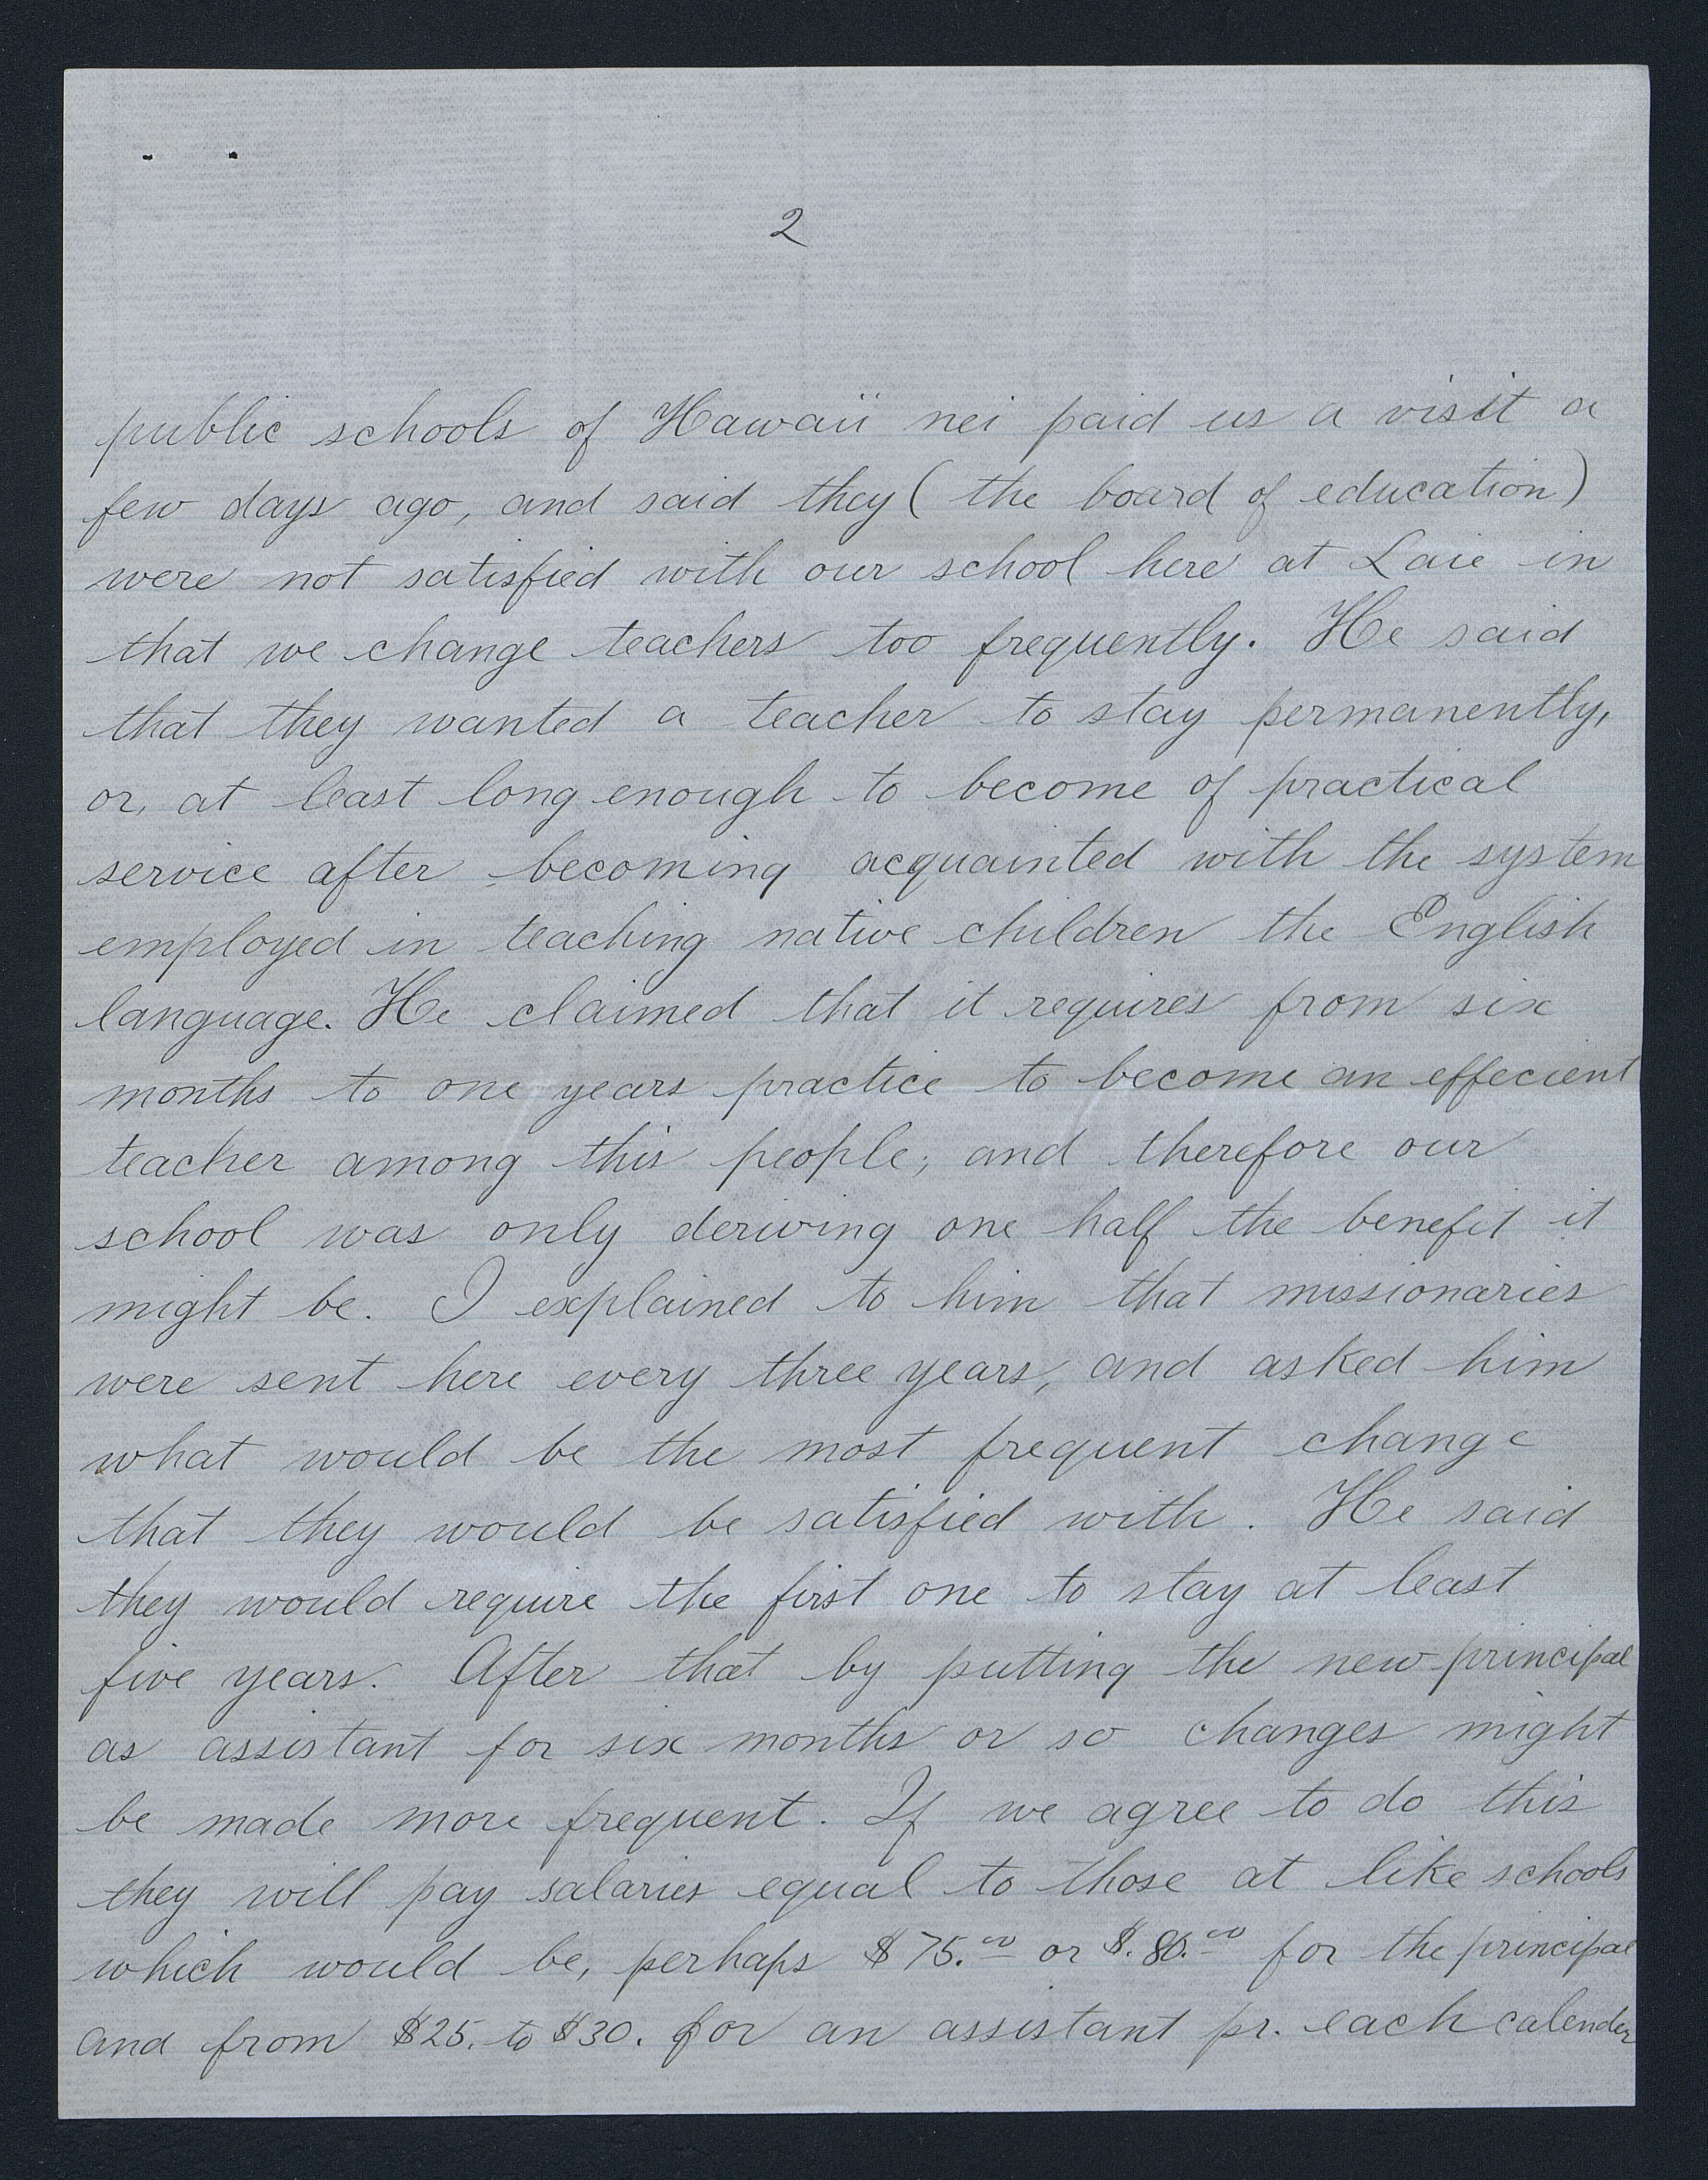 2
public schools of Hawaii nei paid us a visit a
few days ago, and said they ( the board of education)
were not satisfied with our school here at Laie in
that we change teachers too frequently. He said
that they wanted a teacher to stay permanently,
or, at least long enough to become of practical
service after becoming acquainted with the system
employed in teaching native children the English
language. He claimed that it requires from six
months to one years practice to become an effecient
teacher among this people; and therefore our
school was only deriving one half the benefit it
might be. I explained to him that missionaries
were sent here every three years, and asked him
what would be the most frequent change
that they would be satisfied with. He said
they would require the first one to stay at least
five years. After that by putting the new principal
as assistant for six months or so changes might
be made more frequent. If we agree to do this
they will pay salaries equal to those at like schools
which would be, perhaps $75.00 or $.80.00 for the principal
and from $25. to $30. for an assistant pr. each calender